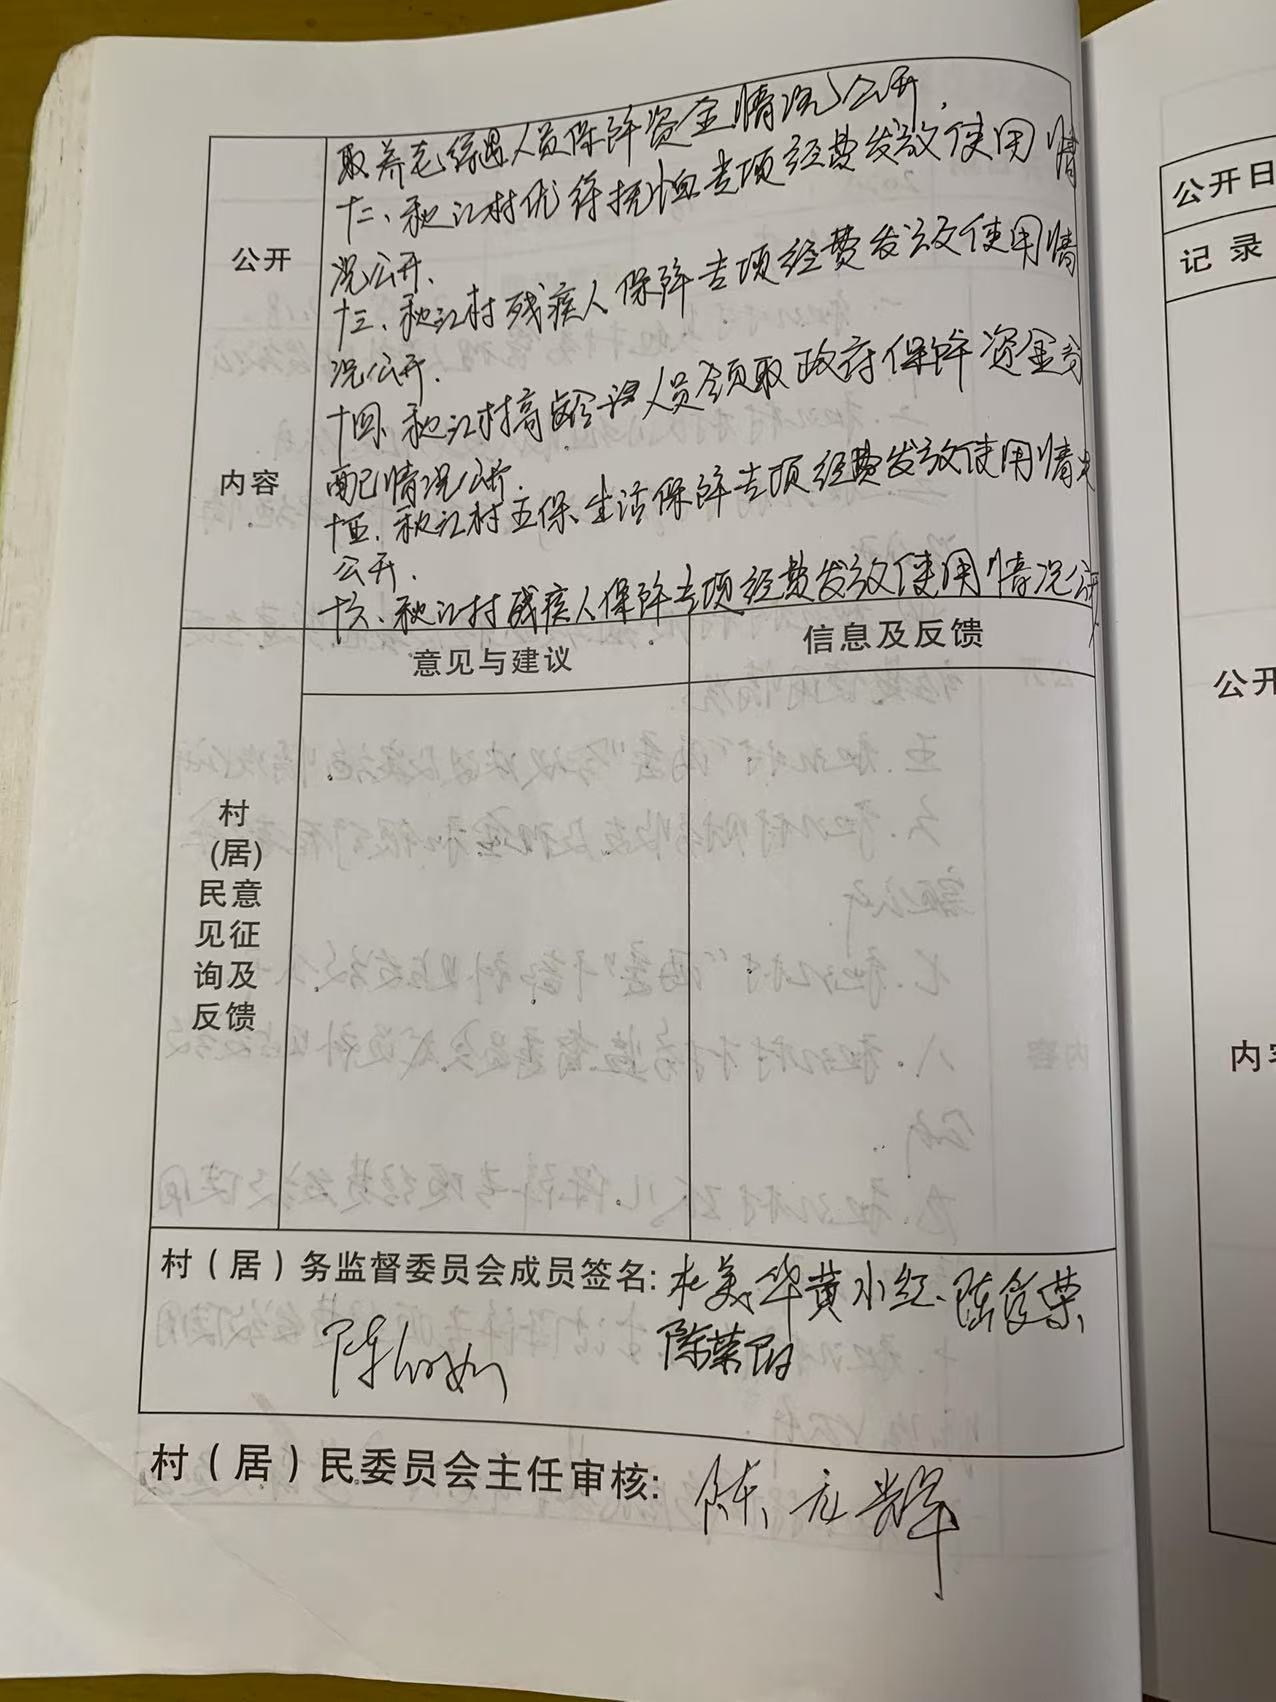 取养老待遇人员保障资金情况公开.
十二、秋江村优待抚恤专项经费发放使用情
况公开.
公开
十三、秋江村残疾人保障专项经费发放使用情
况公开.
十四、秋江村高龄人员领取政府保障资金分
配情况公开.
内容
十五.秋江村五保生活保障专项经费发放使用情况
公开.
十六、秋江村残疾人保障专项经费发放使用情况公开
意见与建议 信息及反馈
村
(居)
民意
见征
询及
反馈
村(居)务监督委员会成员签名: 杜美华 黄小红、陈
陈荣
陈
村(居)民委员会主任审核: 陈 辉
公开日
记录
公开
内容